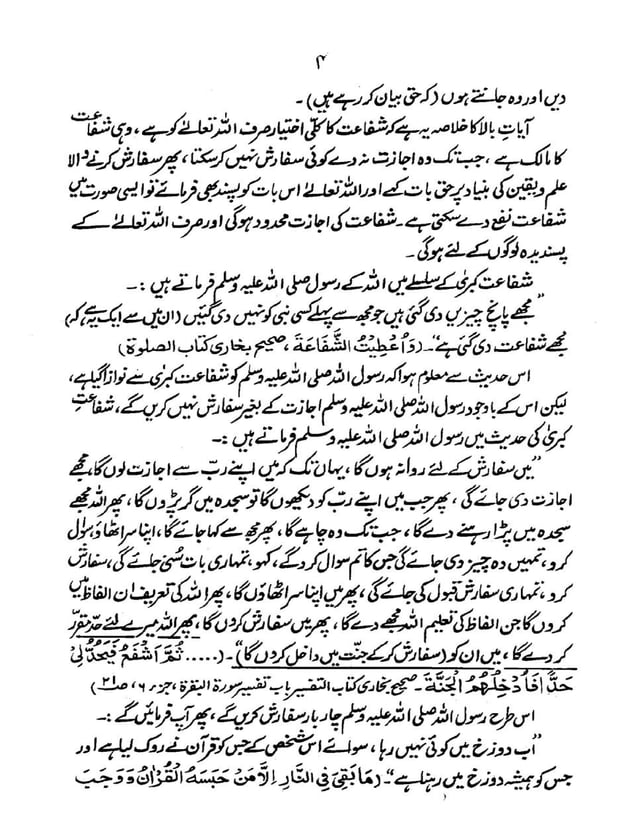 ۴
دیں اور وہ جانتے ہوں (کہ حق بیان کر رہے ہیں)۔
آیات بالا کا خلاصہ یہ ہے کہ شفاعت کا کلی اختیار صرف اللہ تعالےٰ کو ہے، وہی شفاعت
کا مالک ہے، جب تک وہ اجازت نہ دے کوئی سفارش نہیں کر سکتا، پھر سفارش کرنے والا
علم و یقین کی بنیاد پر حق بات کہے اور اللہ تعالےٰ اس بات کو پسند بھی فرمائے تو ایسی صورت میں
شفاعت نفع دے سکتی ہے۔ شفاعت کی اجازت محدود ہوگی اور صرف اللہ تعالےٰ کے
پسندیدہ لوگوں کے لئے ہوگی۔
شفاعت کبریٰ کے سلسلے میں اللہ کے رسول صلی اللہ علیہ وسلم فرماتے ہیں :۔
"مجھے پانچ چیزیں دی گئی ہیں جو مجھ سے پہلے کسی نبی کو نہیں دی گئیں (ان میں سے ایک یہ ہے کہ)
مجھے شفاعت دی گئی ہے"۔ (وَاُعْطِیْتُ الشَّفَاعَۃَ، صحیح بخاری کتاب الصلوٰۃ)
اس حدیث سے معلوم ہوا کہ رسول اللہ صلی اللہ علیہ وسلم کو شفاعت کبریٰ سے نوازا گیا ہے،
لیکن اس کے باوجود رسول اللہ صلی اللہ علیہ وسلم اجازت کے بغیر سفارش نہیں کریں گے، شفاعت
کبریٰ کی حدیث میں رسول اللہ صلی اللہ علیہ وسلم فرماتے ہیں :۔
"میں سفارش کے لئے روانہ ہوں گا، یہاں تک کہ میں اپنے رب سے اجازت لوں گا، مجھے
اجازت دی جائے گی، پھر جب میں اپنے رب کو دیکھوں گا تو سجدہ میں گر پڑوں گا، پھر اللہ مجھے
سجدہ میں پڑا رہنے دے گا، جب تک وہ چاہے گا، پھر مجھ سے کہا جائے گا، اپنا سر اٹھاؤ، سوال
کرو، تمہیں وہ چیز دی جائے گی جس کا تم سوال کرو گے، کہو، تمہاری بات سُنی جائے گی، سفارش
کرو، تمہاری سفارش قبول کی جائے گی، پھر میں اپنا سر اٹھاؤں گا، پھر اللہ کی تعریف ان الفاظ میں
کروں گا جن الفاظ کی تعلیم اللہ مجھے دے گا، پھر میں سفارش کروں گا، پھر اللہ میرے لئے حد مقرر
کر دے گا، میں ان کو (سفارش کرکے جنت میں داخل کروں گا)"۔ (..... ثُمَّ اَشْفَعُ فَیَحُدُّ لِیْ
حَدًّا فَاُدْخِلُھُمُ الْجَنَّۃَ۔ صحیح بخاری کتاب التفسیر باب تفسیر سورۃ البقرۃ، جزء ۶، ص۲۱)
اس طرح رسول اللہ صلی اللہ علیہ وسلم چار بار سفارش کریں گے، پھر آپ فرمائیں گے :۔
"اب دوزخ میں کوئی نہیں رہا، سوائے اس شخص کے جس کو قرآن نے روک لیا ہے اور
جس کو ہمیشہ دوزخ میں رہنا ہے"۔ (مَا بَقِیَ فِی النَّارِ اِلَّا مَنْ حَبَسَہُ الْقُرْاٰنُ وَ وَجَبَ